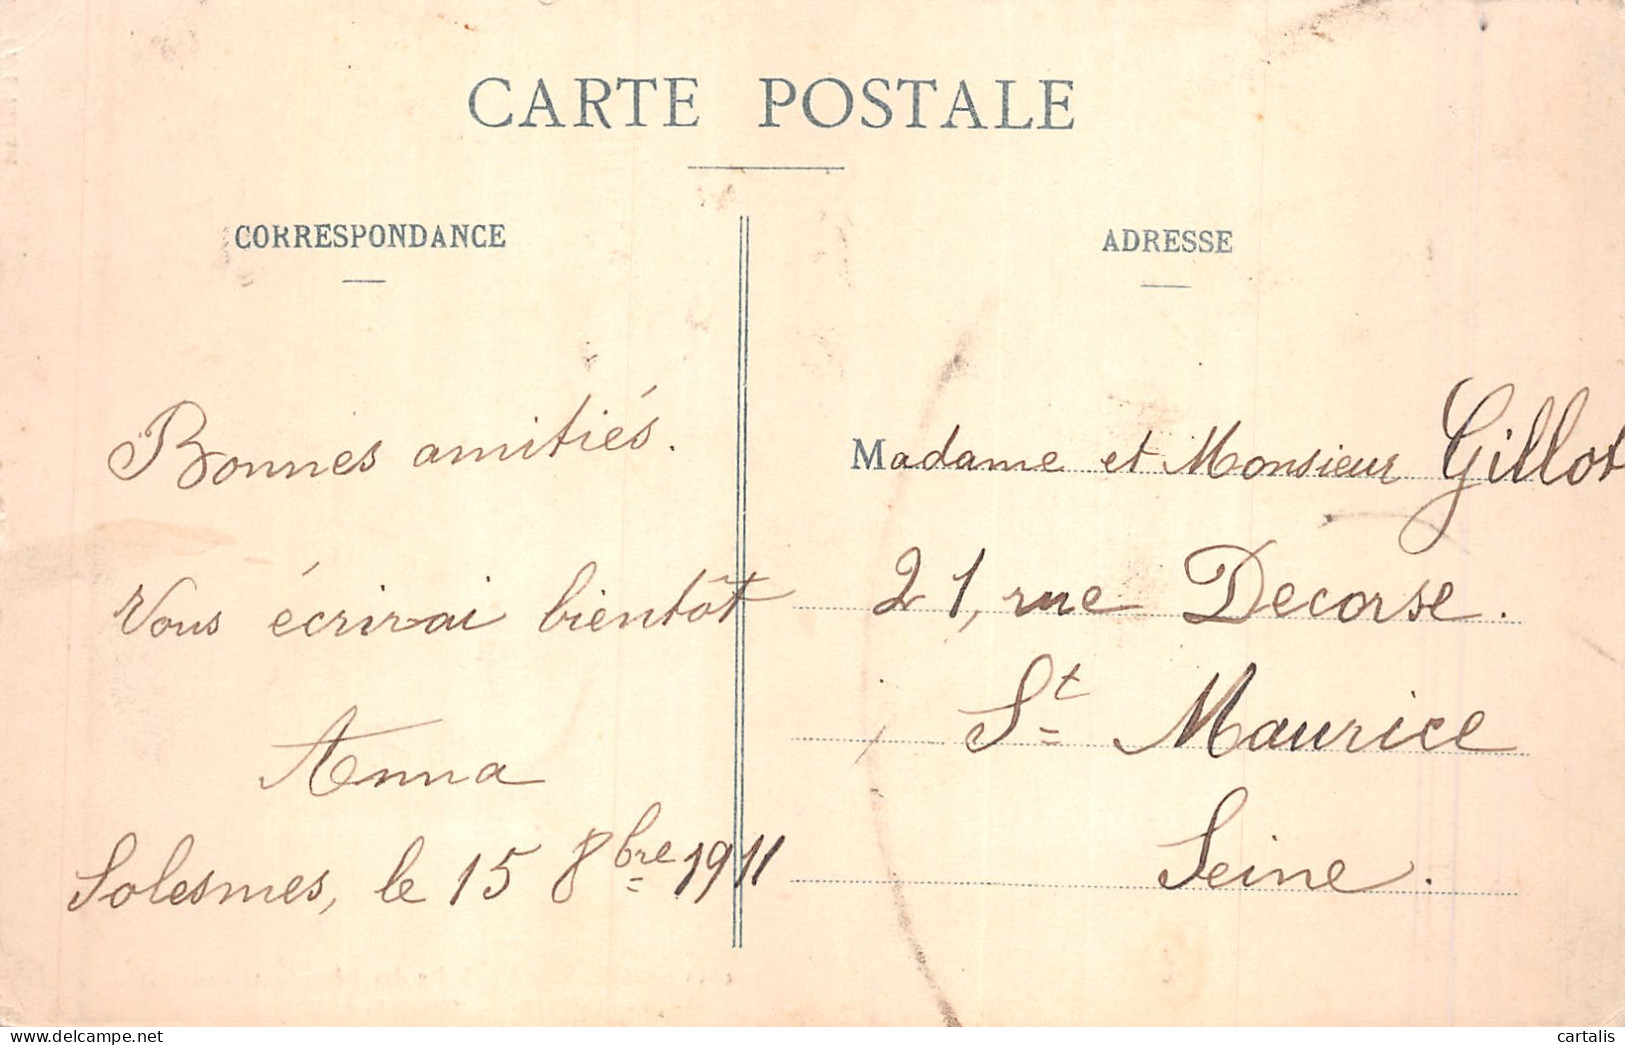 CARTE POSTALE
CORRESPONDANCE
Bonnes amitiés.
Vous écrirai bientôt
Anna
Solesmes, le 15 8bre 1911
ADRESSE
Madame et Monsieur Gillot
21, rue Decorse.
St Maurice
Seine.
www.delcampe.net
cartalis